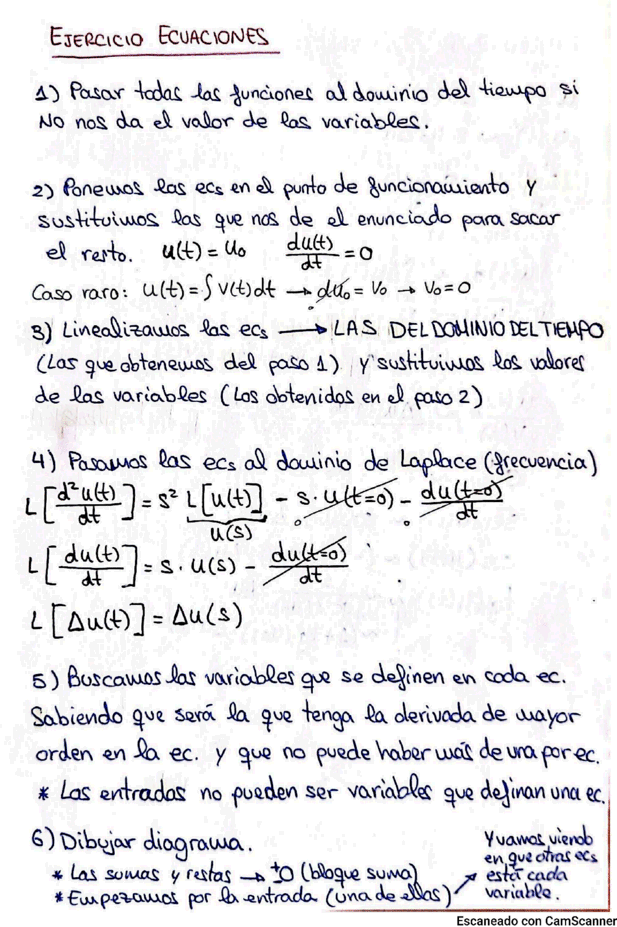 EJERCICIO ECUACIONES
1) Pasar todas las funciones al dominio del tiempo si
NO nos da el valor de las variables.
2) Ponemos las ecs en el punto de funcionamiento y
sustituimos las que nos de el enunciado para sacar
el resto. u(t) = U₀ du(t)/dt = 0
Caso raro: u(t) = ∫ v(t) dt → du₀ = V₀ → V₀ = 0
3) Linealizamos las ecs → LAS DEL DOMINIO DEL TIEMPO
(Las que obtenemos del paso 1) y sustituimos los valores
de las variables (Los obtenidos en el paso 2)
4) Pasamos las ecs al dominio de Laplace (frecuencia)
L[d²u(t)/dt] = s² L[u(t)] - s · u(t=0) - du(t=0)/dt
u(s)
0 0
L[du(t)/dt] = s · u(s) - du(t=0)/dt
L[Δu(t)] = Δu(s)
5) Buscamos las variables que se definen en cada ec.
Sabiendo que será la que tenga la derivada de mayor
orden en la ec. y que no puede haber más de una por ec.
* Las entradas no pueden ser variables que definan una ec.
6) Dibujar diagrama.
* Las sumas y restas → +O (bloque suma)
* Empezamos por la entrada (una de ellas) →
Y vamos viendo
en que otras ecs
está cada
variable.
Escaneado con CamScanner